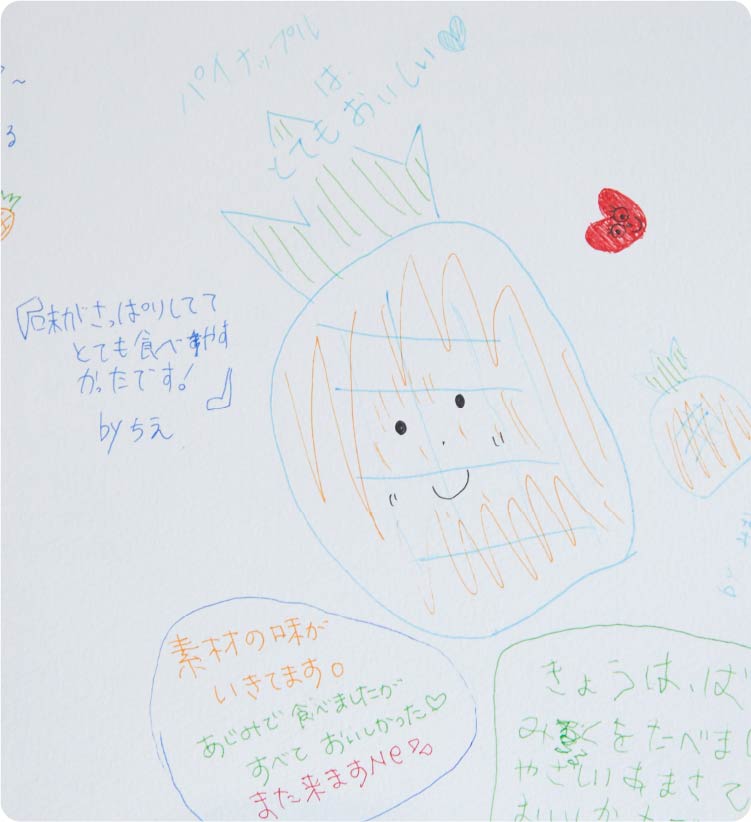 パイナップル
は
とても おいしい
る
『味がさっぱりしてて
とても食べやす
かったです！』
by ちえ
素材の味が
いきてます。
あじみで 食べましたが
すべて おいしかった♡
また来ますNe
by
きょうは、ば
みるくをたべま
やさしいあまさて
おいしか